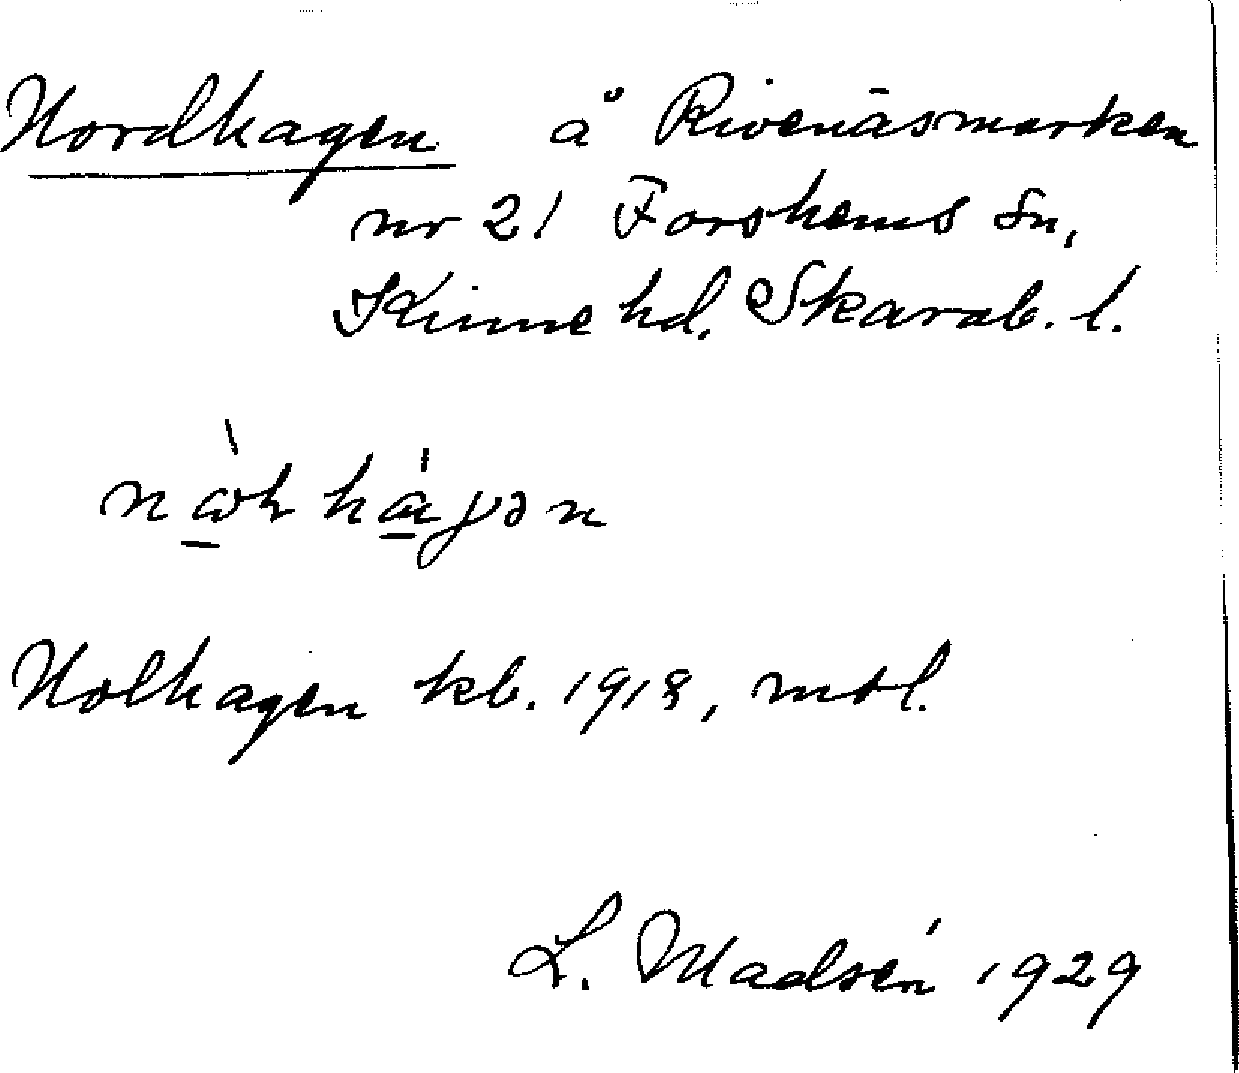 Nordhagen å Rivenäsmarken
nr 21 Forshems sn,
Kinne hd. Skarab. l.
Nolhagen kb. 1918, mtl.
L. Madsén 1929